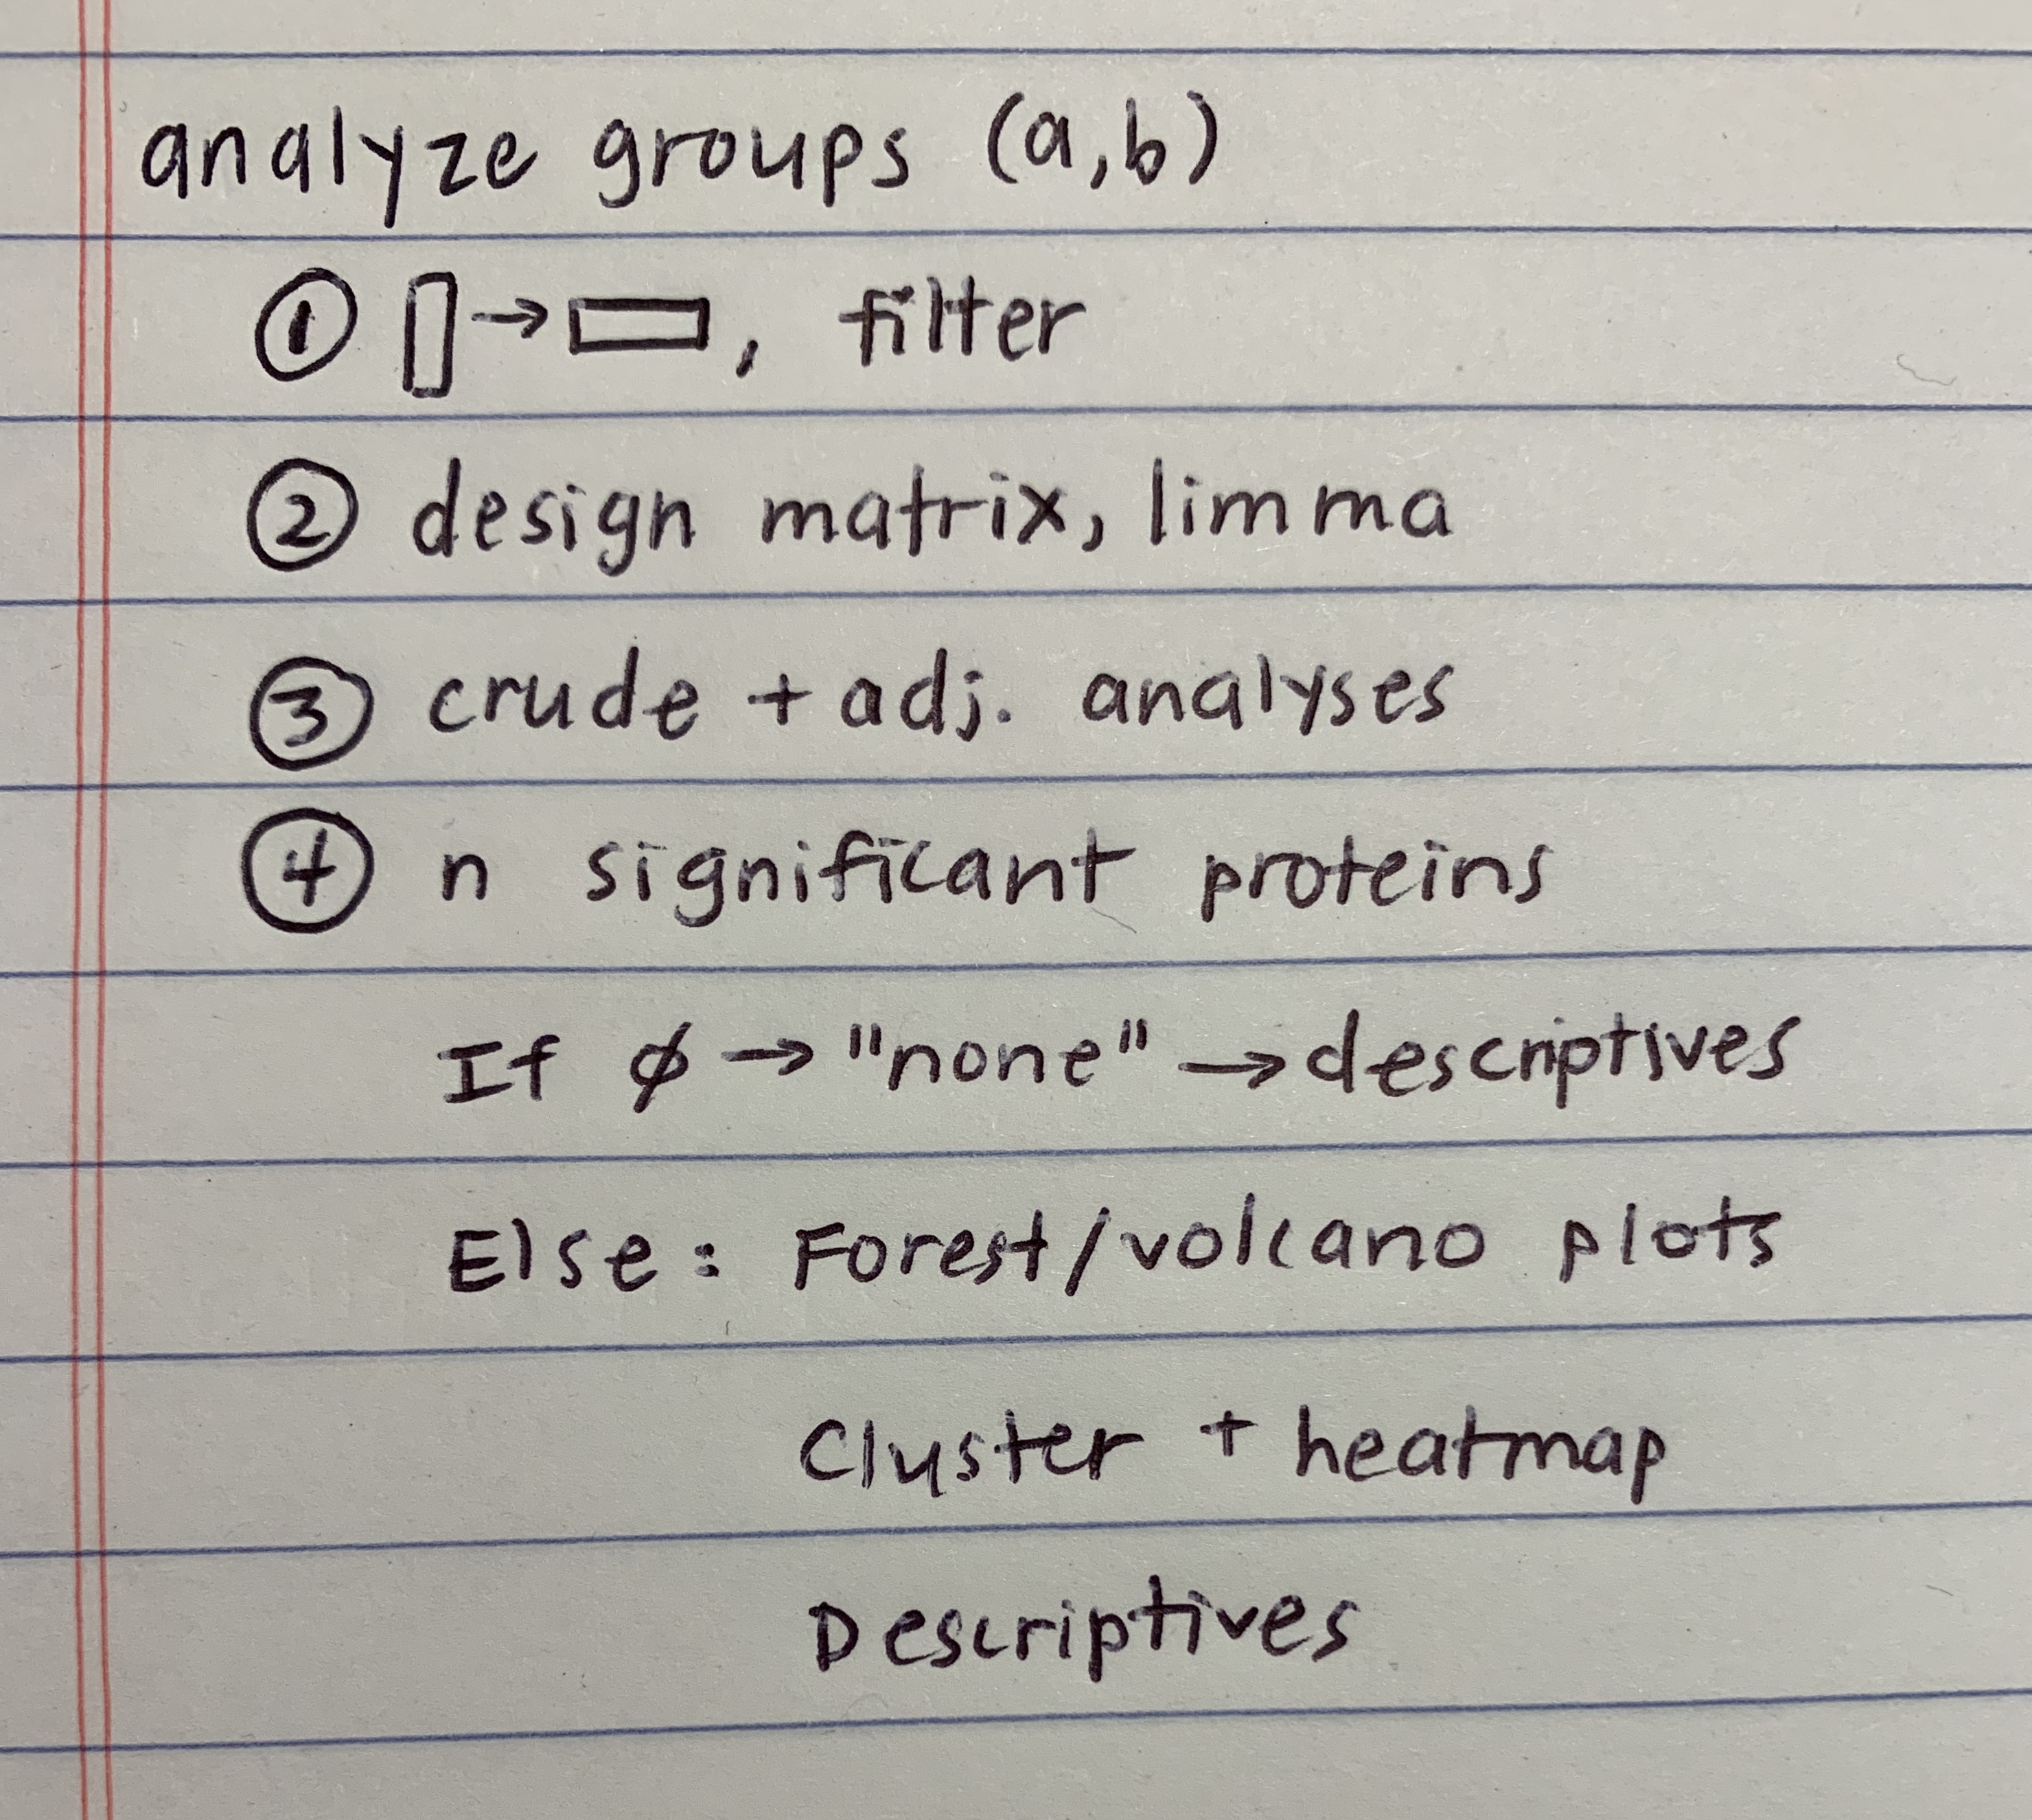 analyze groups (a,b)
① → , filter
② design matrix, limma
③ crude + adj. analyses
④ n significant proteins
If ø → "none" → descriptives
Else: Forest/volcano plots
Cluster + heatmap
Descriptives